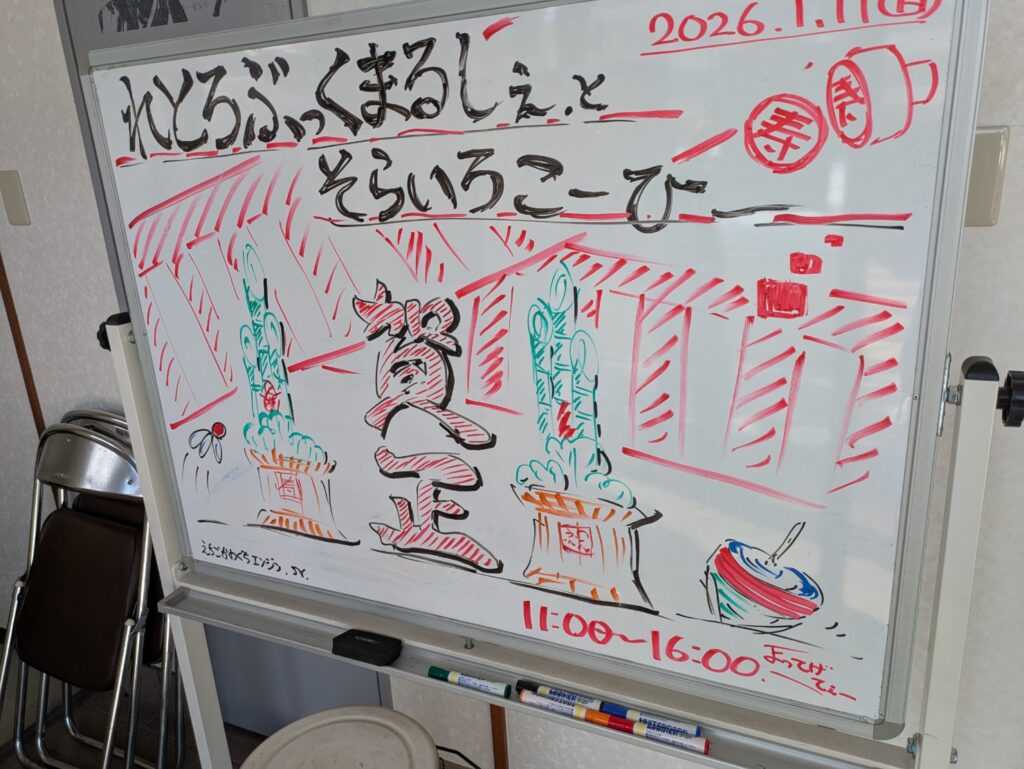 2026.1.11(日)
れとろぶっくまるしぇと
そらいろこーひー
寿
賀正
えちごかわぐちエンジン.SY.
11:00~16:00.
まってげ
てぇー